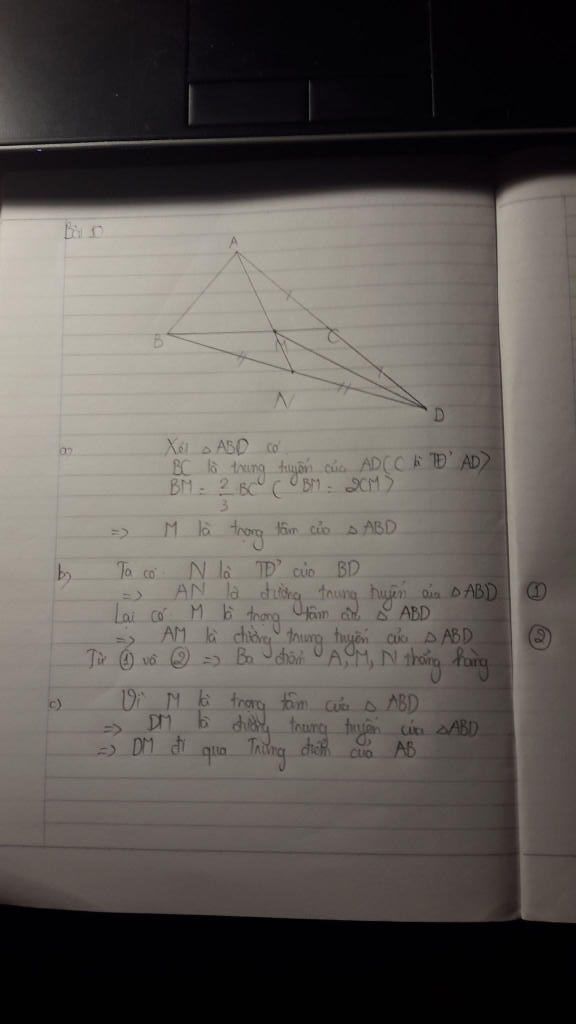 Bài 10
A
B
M
C
N
D
a) Xét △ABD có
BC là trung tuyến của AD (C là TĐ' AD)
BM = 2/3 BC ( BM = 2CM)
=> M là trọng tâm của △ABD
b) Ta có N là TĐ' của BD
=> AN là đường trung tuyến của △ABD ①
Lại có M là trọng tâm của △ABD
=> AM là đường trung tuyến của △ABD ②
Từ ① và ② => Ba điểm A, M, N thẳng hàng
c) Vì M là trọng tâm của △ABD
=> DM là đường trung tuyến của △ABD
=> DM đi qua Trung điểm của AB